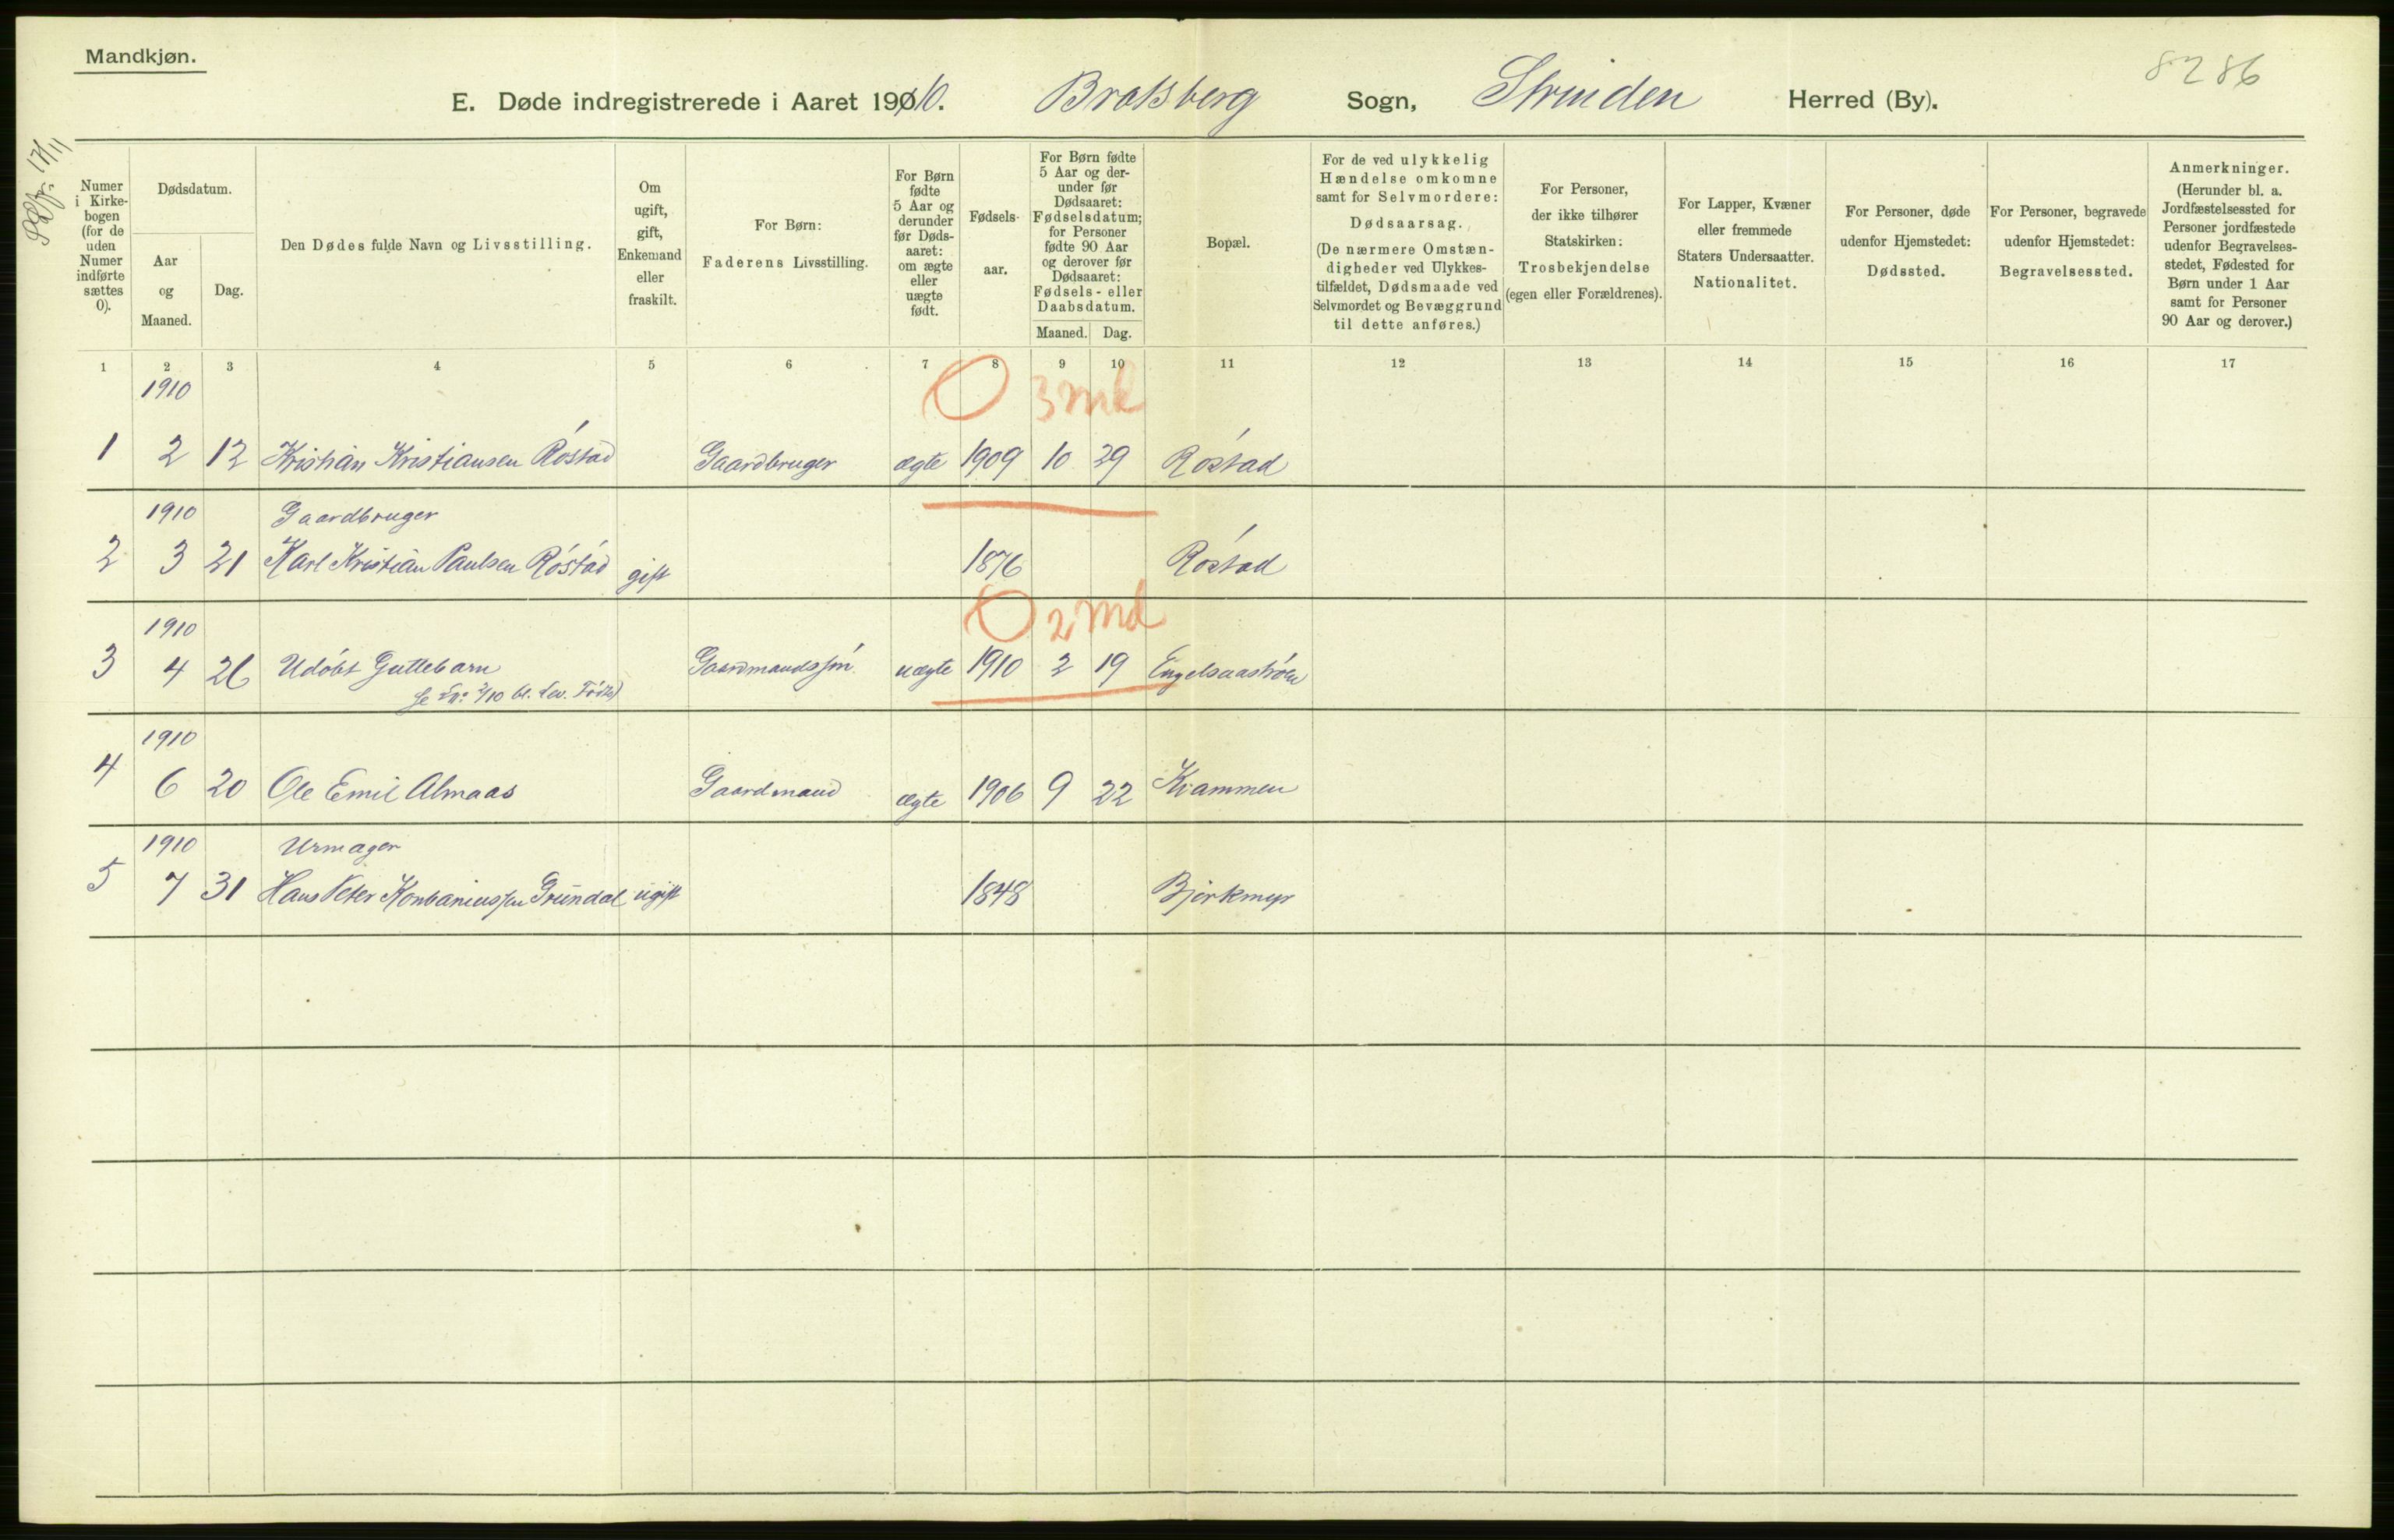 Mandkjøn.
8286
E. Døde indregistrerede i Aaret 1910. Bratsberg Sogn, Strinden Herred (By).
Numer i Kirkebogen (for de uden Numer indførte sættes 0).
Dødsdatum.
Aar og Maaned.
Dag.
Den Dødes fulde Navn og Livsstilling.
Om ugift, gift, Enkemand eller fraskilt.
For Børn: Faderens Livsstilling.
For Børn fødte 5 Aar og derunder før Dødsaaret: om ægte eller uægte født.
Fødselsaar.
For Børn fødte 5 Aar og derunder før Dødsaaret: Fødselsdatum; for Personer fødte 90 Aar og derover før Dødsaaret: Fødsels- eller Daabsdatum.
Maaned. Dag.
Bopæl.
For de ved ulykkelig Hændelse omkomne samt for Selvmordere: Dødsaarsag. (De nærmere Omstændigheder ved Ulykkestilfældet, Dødsmaade ved Selvmordet og Bevæggrund til dette anføres.)
For Personer, der ikke tilhører Statskirken: Trosbekjendelse (egen eller Forældrenes).
For Lapper, Kvæner eller fremmede Staters Undersaatter. Nationalitet.
For Personer, døde udenfor Hjemstedet: Dødssted.
For Personer, begravede udenfor Hjemstedet: Begravelsessted.
Anmerkninger. (Herunder bl. a. Jordfæstelsessted for Personer jordfæstede udenfor Begravelsesstedet, Fødested for Børn under 1 Aar samt for Personer 90 Aar og derover.)
1 2 3 4 5 6 7 8 9 10 11 12 13 14 15 16 17
1910 0 3 md
1 2 12 Kristian Kristiansen Róstad Gaardbruger ægte 1909 10 29 Róstad
1910 Gaardbruger
2 3 21 Karl Kristian Paulsen Róstad gift 1876 Róstad
1910 0 2 md
3 4 26 Udóbt Guttebarn Gaardmandssón uægte 1910 2 19
1910
4 6 20 Ole Emil Almaas Gaardmand ægte 1906 9 22 Kvammen
1910 Urmager
5 7 31 Hans Peter Grendal ugift 1848 Bjørkmyr